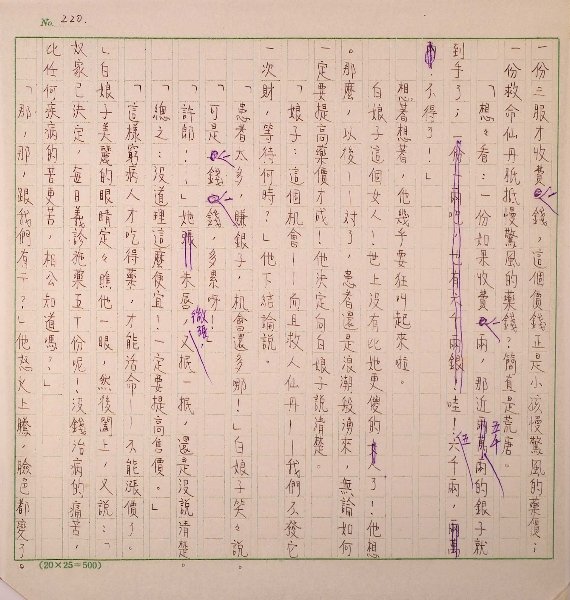 No. 220.
一份三服才收費一錢,這個價錢正是小孩慢驚風的藥價;
一份救命仙丹抵抵慢驚風的藥錢?簡直是荒唐。
「想々看:一份如果收費一兩,那近五千兩的銀子就
到手了;一份二兩吧,也有六千兩銀!哇!六千兩,
不得了!」
想著想著,他幾乎要狂叫起來啦。
白娘子這個女人!世上沒有比她更傻的人了!他想
。那麼,以後 對了,患者還是浪潮般湧來,無論如何
一定要提高藥價才成!他決定向白娘子說清楚。
「娘子:這個機會——而且救人仙丹——我們不發它
一次財,等待何時?」他下結論說。
「患者太多,賺銀子,機會還多哪!」白娘子笑々說。
「可是一錢錢,多累呀!
「許郎!,」她微張未唇,又抿一抿,還是沒說清楚。
「總之:沒道理這麼便宜!一定要提高售價。」
「這樣窮病人才吃得藥,才能活命——不能漲價了。
」白娘子美麗的眼睛定々瞧他一眼,然後闔上,又說:「
奴家已決定,每日義診施藥五百份呢!沒錢治病的痛苦,
比任何疾病的苦更苦,相公知道嗎?」
「那,那,跟我們有干?」他怒火上騰,臉色都變了。
(20×25=500)